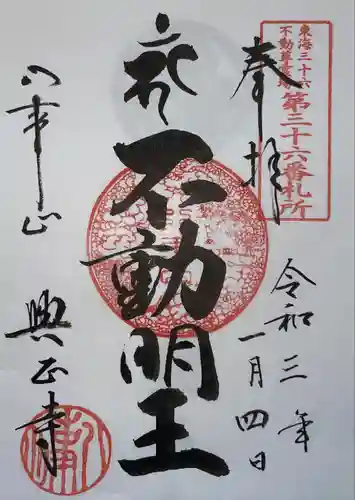 東海三十六
不動尊霊場
第二十六番札所
奉拝
令和三年
一月四日
不動明王
八事山
興正寺